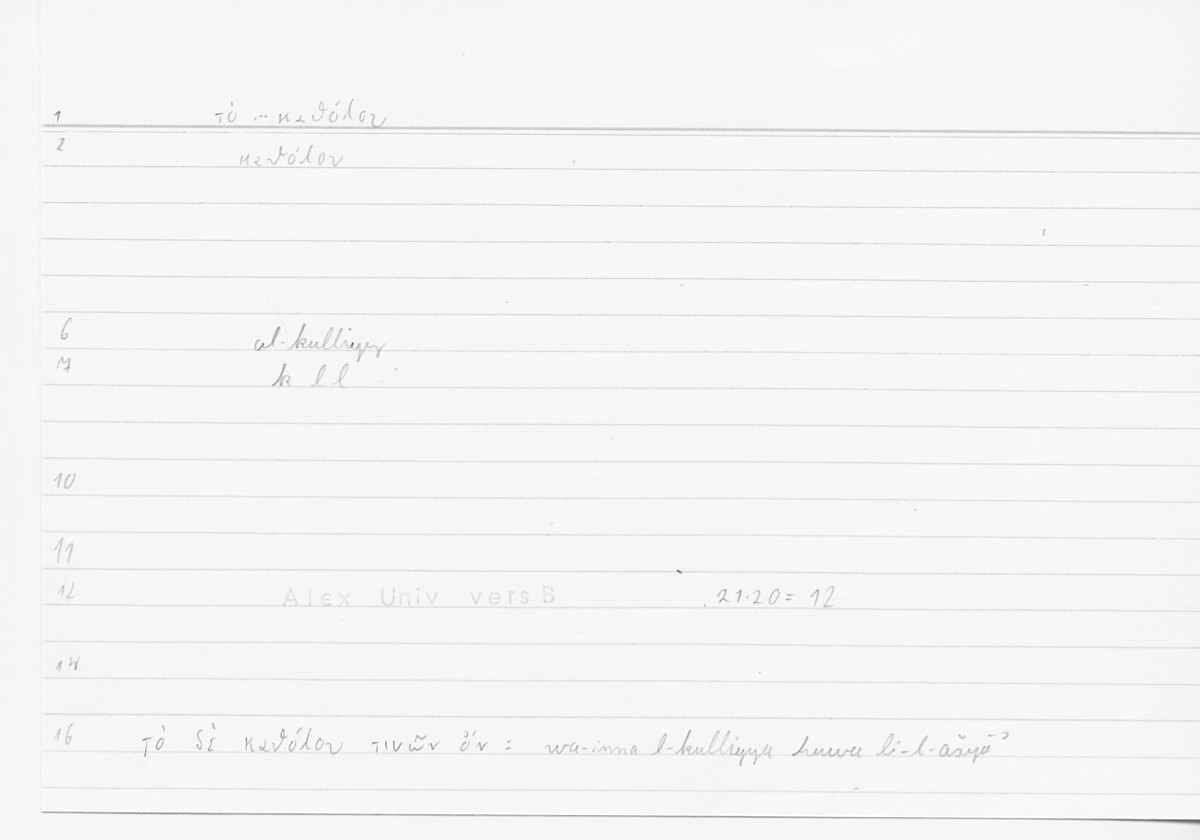 1 τὸ ... καθόλου
2 καθόλου
6 al-kulliyy
7 k l l
10
11
12 Alex Univ vers B 21.20 = 12
14
16 τὸ δὲ καθόλου τινῶν ὄν = wa-inna l-kulliyya huwa li-l-ašyāʾ